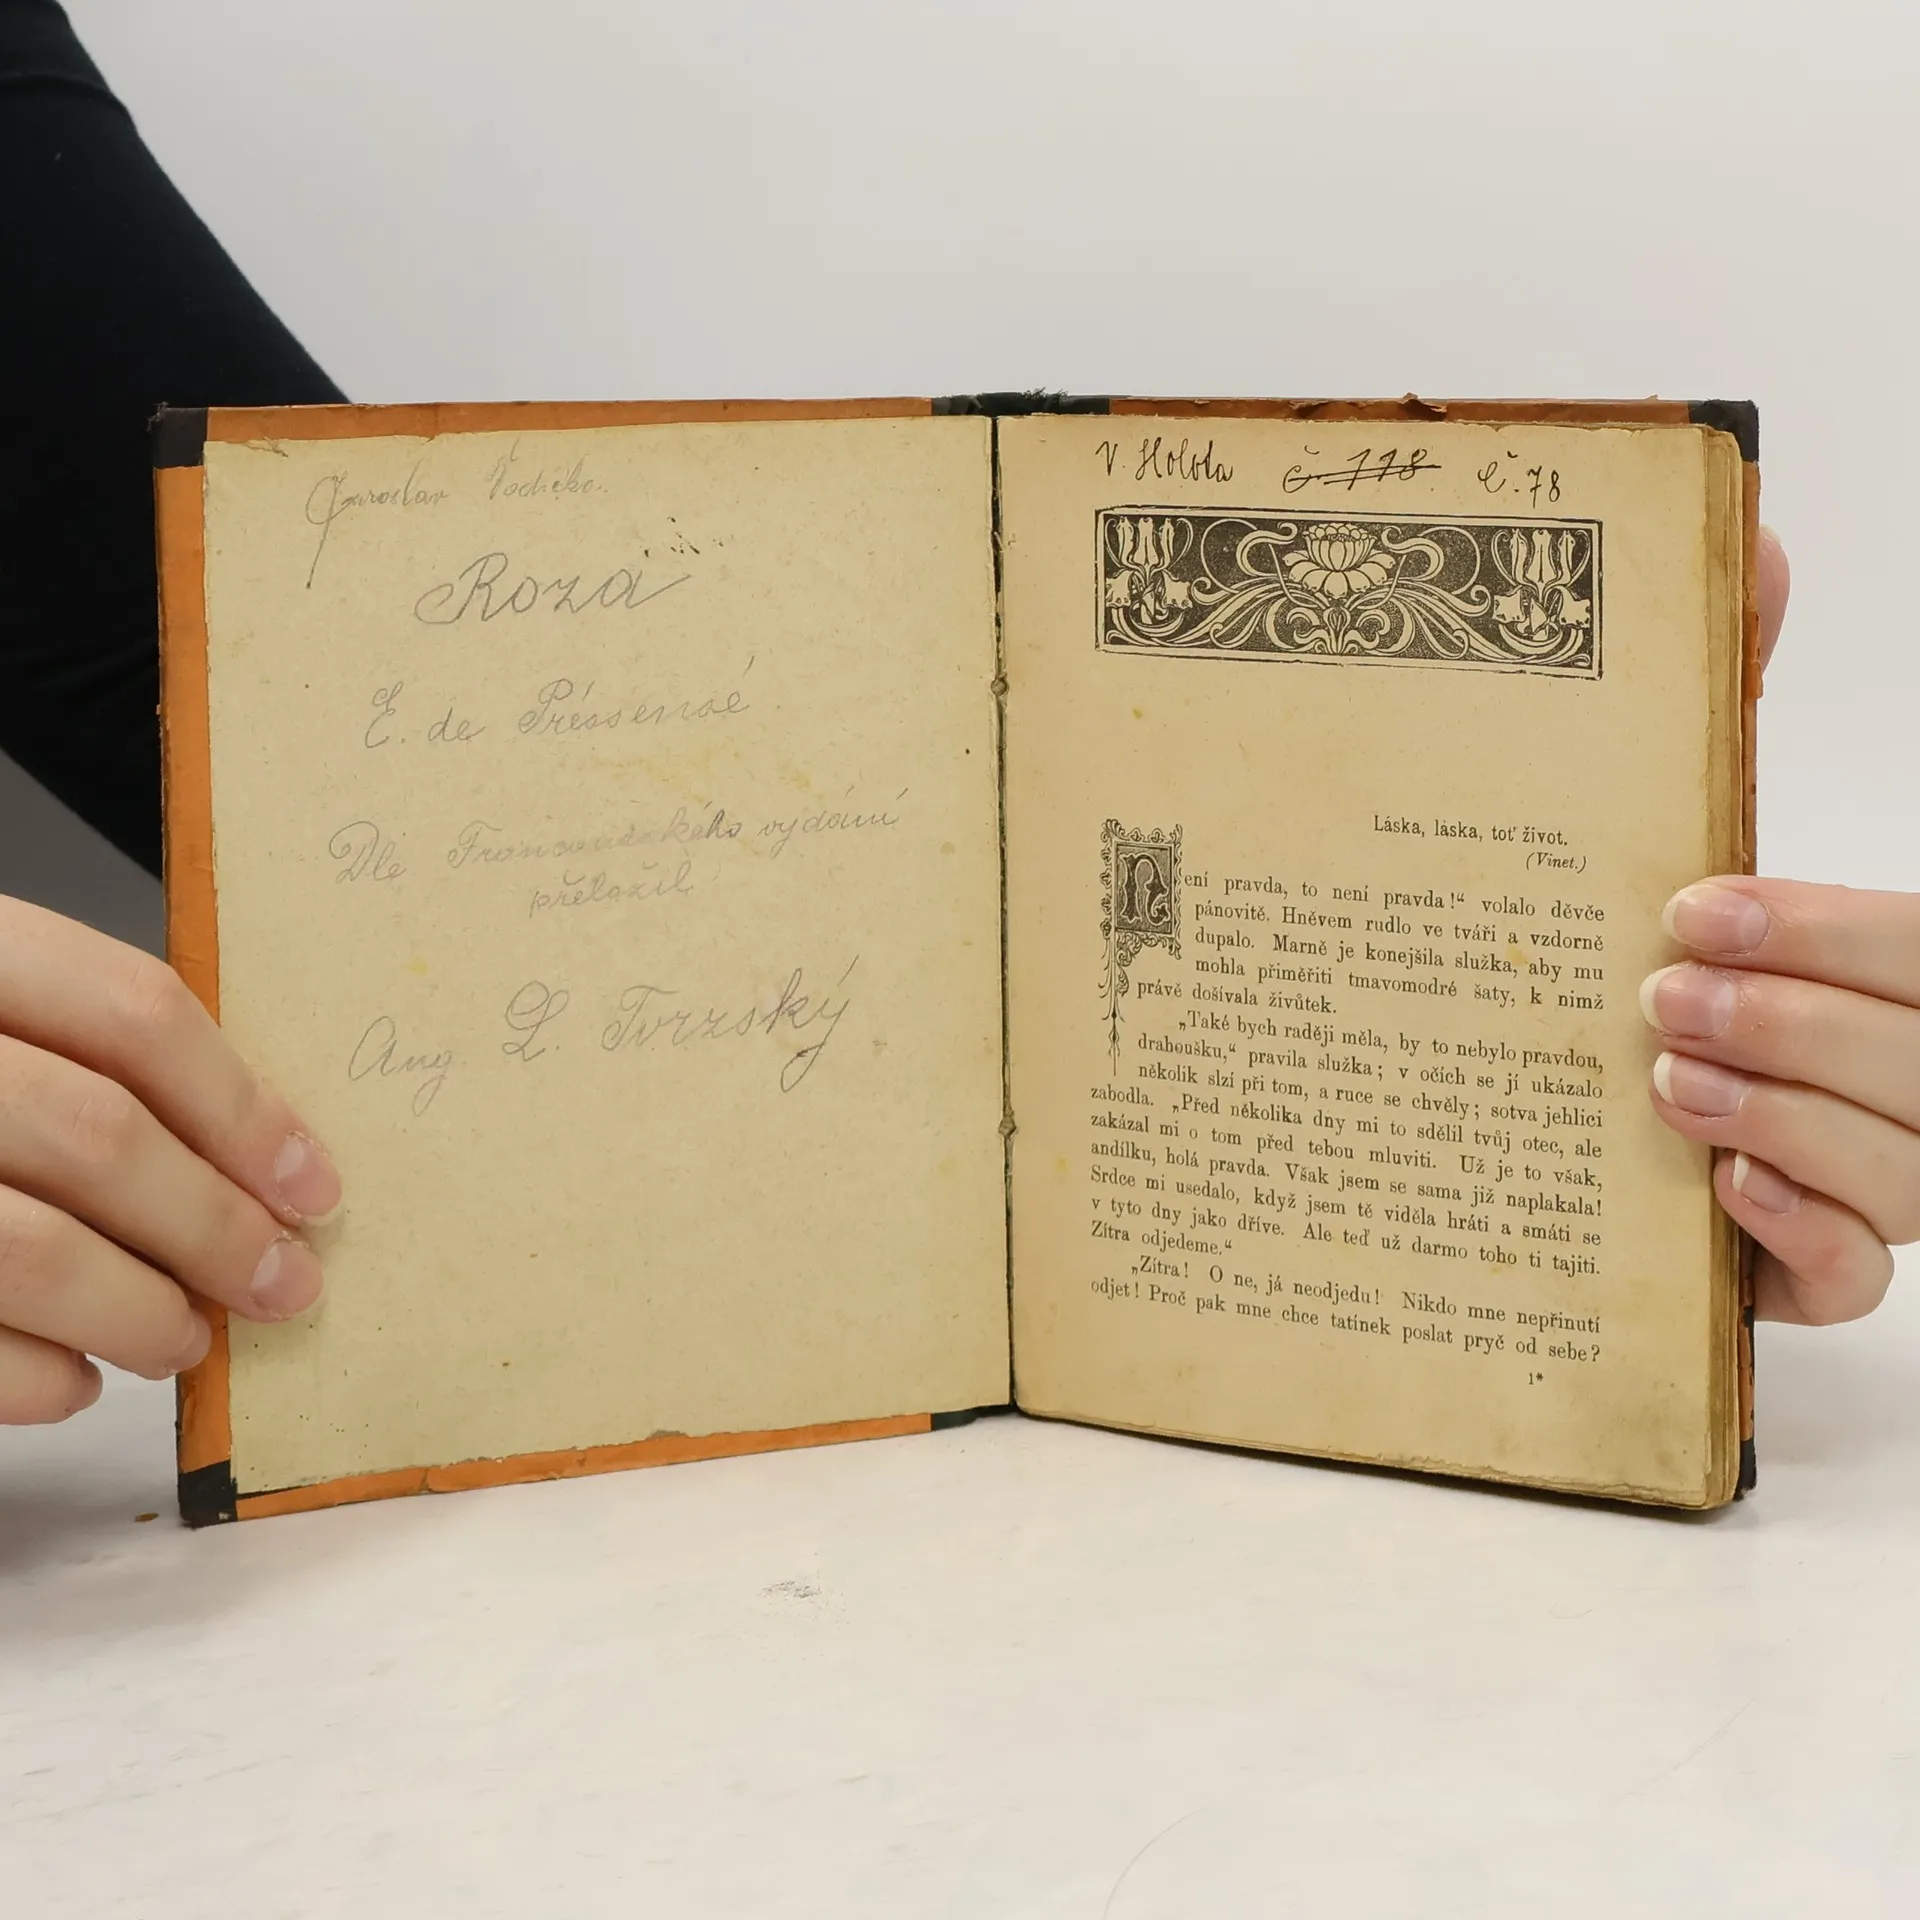 Jaroslav Vodička.
Roza
E. de Préssensé
Dle Francouzského vydání
přeložil
Aug. L. Tvrzský
V. Holota Č. 118 Č. 78
Láska, láska, toť život.
(Vinet.)
Není pravda, to není pravda!“ volalo děvče
pánovitě. Hněvem rudlo ve tváři a vzdorně
dupalo. Marně je konejšila služka, aby mu
mohla přiměřiti tmavomodré šaty, k nimž
právě došívala živůtek.
„Také bych raději měla, by to nebylo pravdou,
drahoušku,“ pravila služka; v očích se jí ukázalo
několik slzí při tom, a ruce se chvěly; sotva jehlici
zabodla. „Před několika dny mi to sdělil tvůj otec, ale
zakázal mi o tom před tebou mluviti. Už je to však,
andílku, holá pravda. Však jsem se sama již naplakala!
Srdce mi usedalo, když jsem tě viděla hráti a smáti se
v tyto dny jako dříve. Ale teď už darmo toho ti tajiti.
Zítra odjedeme.“
„Zítra! O ne, já neodjedu! Nikdo mne nepřinutí
odjet! Proč pak mne chce tatínek poslat pryč od sebe?
1*